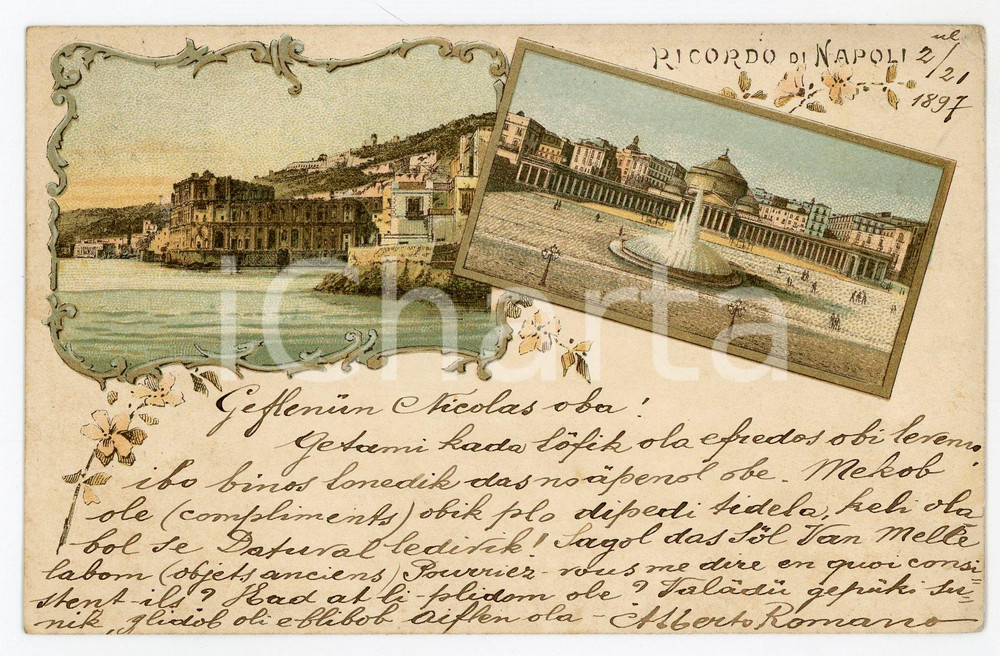 RICORDO DI NAPOLI
ul
2/21
1897
iCharta
Geflenün Nicolas oba!
Getami kada löfik ola efredos obi levemo,
ibo binos lonedik das no äpenol obe. Mekob
ole (compliments) obik plo dipedi tidela, keli ola
bol se Datuval ledivik! Sagol das Söl Van Melle
labom (objets anciens) Pourriez-vous me dire en quoi consi=
stent-ils? Kad at li-plidom ole? Valadü gepüki su=
nik, glidob oli e blibob Aiflen ola - Alberto Romano